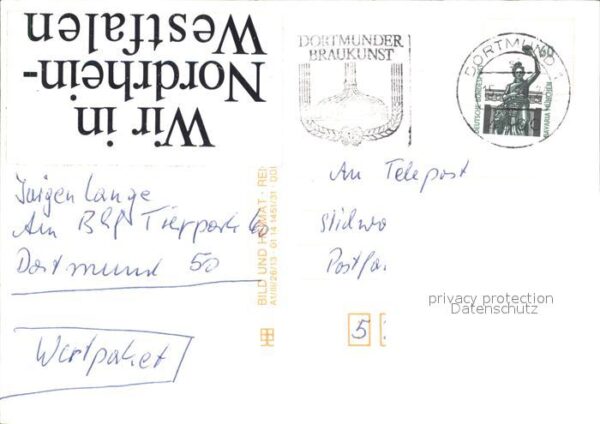 Wir in
Nordrhein-
Westfalen
DORTMUNDER
BRAUKUNST
DORTMUND 1
60
DEUTSCHE BUNDESPOST
BAVARIA MÜNCHEN
Jürgen Lange
Am Bhf Tierpark 6
Dortmund 50
Wertpaket
BILD UND HEIMAT · REI
A1/III/26/13 · 01 14 1451/31 · 001
An Telepost
Stichwo
Postfa
privacy protection
Datenschutz
5